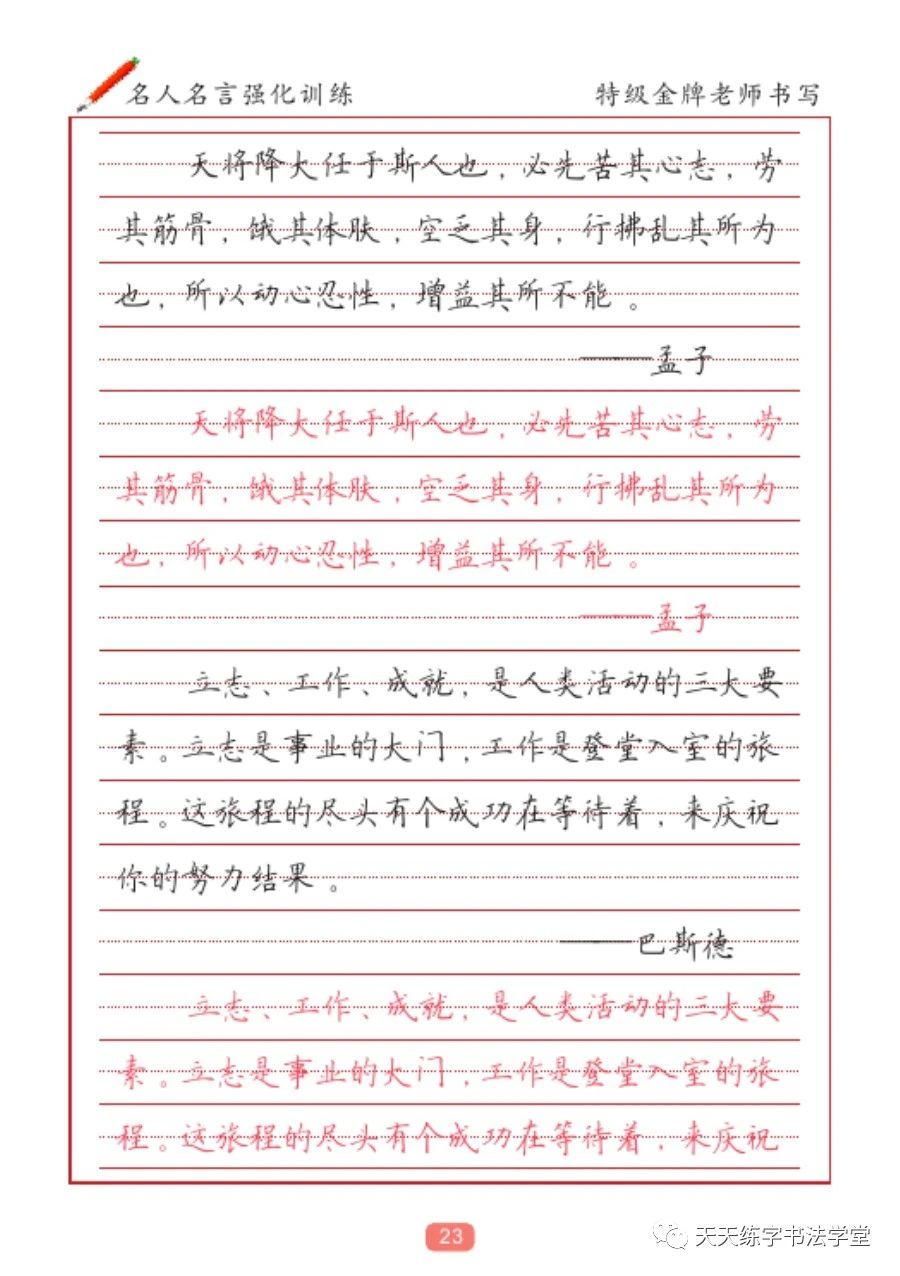 名人名言强化训练
特级金牌老师书写
天将降大任于斯人也，必先苦其心志，劳
其筋骨，饿其体肤，空乏其身，行拂乱其所为
也，所以动心忍性，增益其所不能。
——孟子
天将降大任于斯人也，必先苦其心志，劳
其筋骨，饿其体肤，空乏其身，行拂乱其所为
也，所以动心忍性，增益其所不能。
——孟子
立志、工作、成就，是人类活动的三大要
素。立志是事业的大门，工作是登堂入室的旅
程。这旅程的尽头有个成功在等待着，来庆祝
你的努力结果。
——巴斯德
立志、工作、成就，是人类活动的三大要
素。立志是事业的大门，工作是登堂入室的旅
程。这旅程的尽头有个成功在等待着，来庆祝
23
天天练字书法学堂